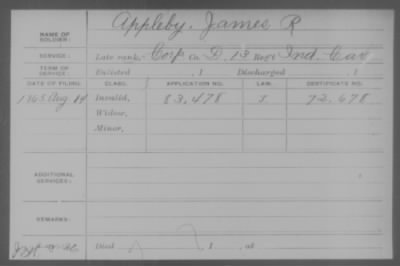 NAME OF SOLDIER: Appleby, James R
SERVICE: Late rank, Corp Co. D, 13 Reg't Ind. Cav
TERM OF SERVICE: Enlisted , 1 Discharged , 1
DATE OF FILING. CLASS. APPLICATION NO. LAW. CERTIFICATE NO.
Aug 14 Invalid, 83,478 72,678
Widow,
Minor,
ADDITIONAL SERVICES:
REMARKS:
Died , 1 , at